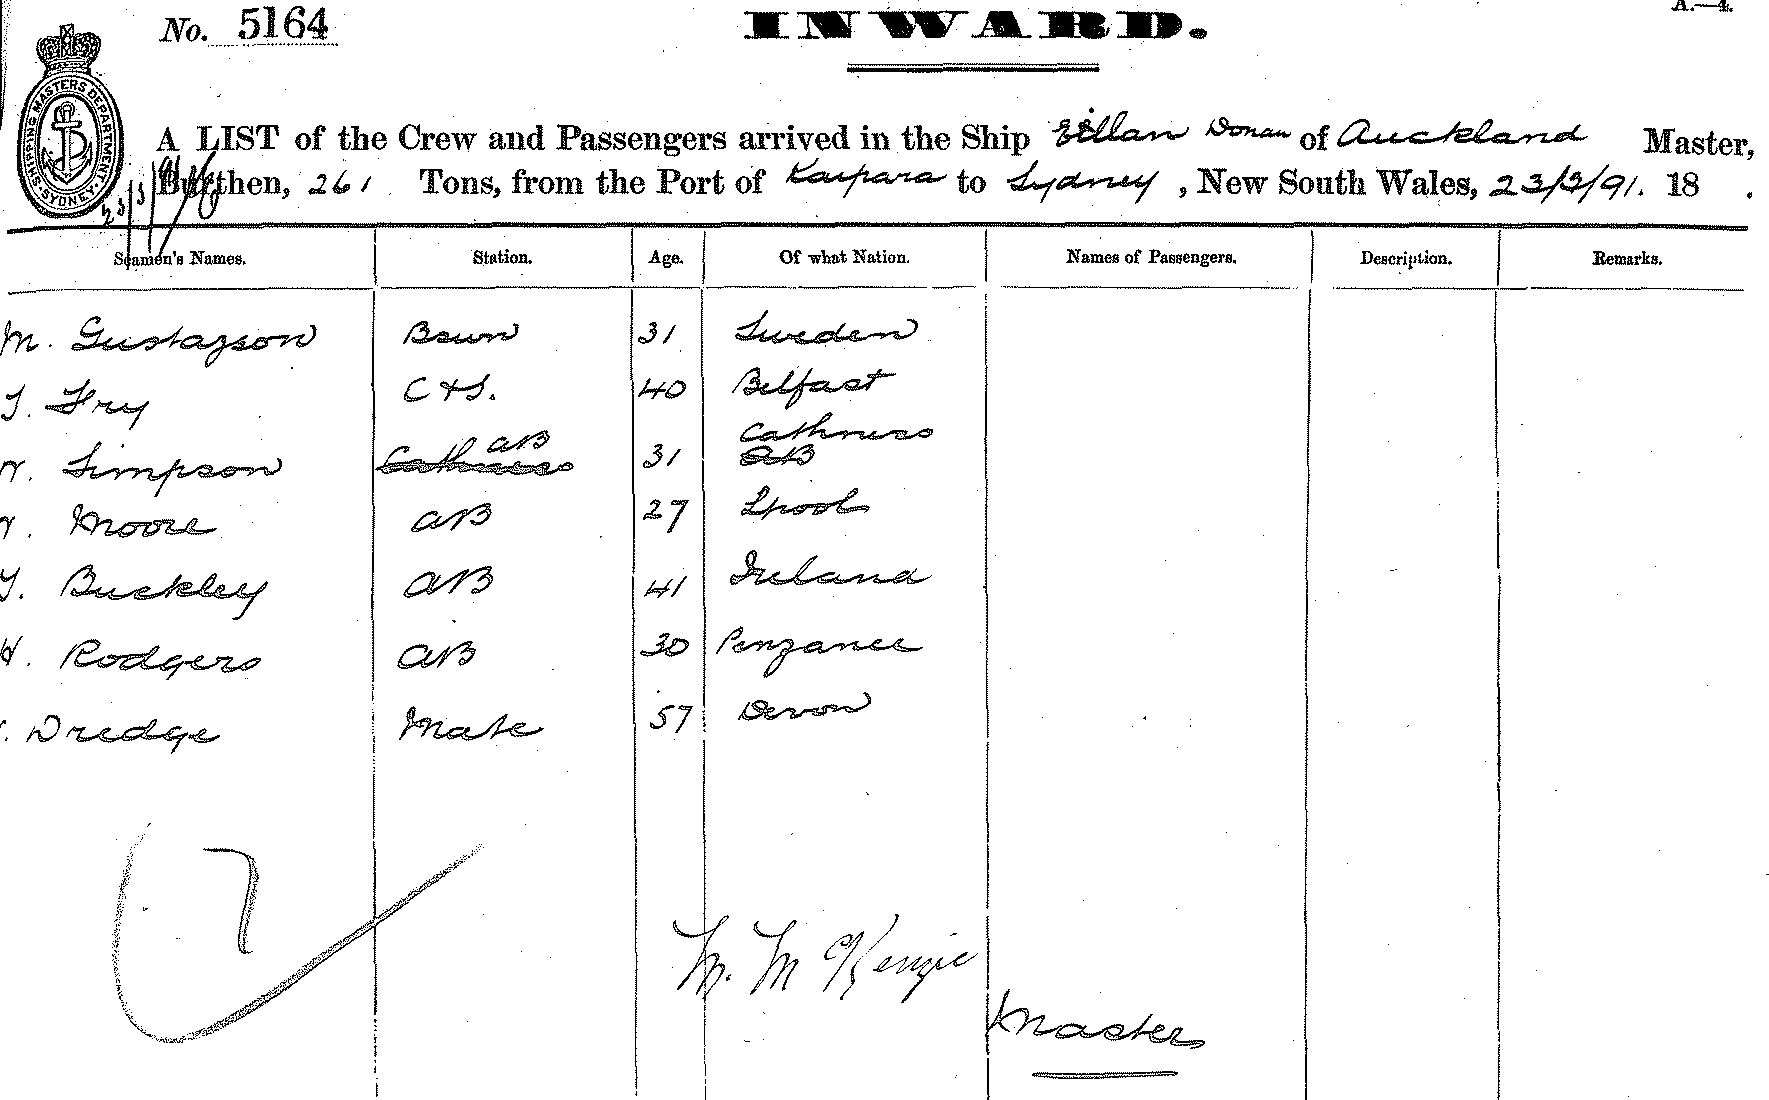 No. 5164
INWARD.
A.—4.
SHIPPING MASTERS DEPARTMENT. SYDNEY.
A LIST of the Crew and Passengers arrived in the Ship Eillan Donan of Auckland Master,
Burthen, 261 Tons, from the Port of Kaipara to Sydney, New South Wales, 23/3/91. 18 .
23/3/91
Seamen's Names. Station. Age. Of what Nation. Names of Passengers. Description. Remarks.
M. Gustafson Bsun 31 Sweden
T. Fry C & S. 40 Belfast
Simpson Cathness AB 31 Cathness AB
Moore AB 27 Lpool
Buckley AB 41 Ireland
H. Rodgers AB 30 Penzance
Dredge Mate 57 Devon
7
M. McKenzie
Master